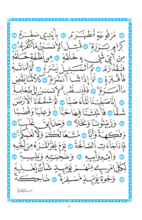 مَّرْفُوعَةٍ مُّطَهَّرَةٍ ۝ بِأَيْدِي سَفَرَةٍ ۝
كِرَامٍ بَرَرَةٍ ۝ قُتِلَ الْإِنسَانُ مَا أَكْفَرَهُ ۝
مِنْ أَيِّ شَيْءٍ خَلَقَهُ ۝ مِن نُّطْفَةٍ خَلَقَهُ
فَقَدَّرَهُ ۝ ثُمَّ السَّبِيلَ يَسَّرَهُ ۝ ثُمَّ أَمَاتَهُ
فَأَقْبَرَهُ ۝ ثُمَّ إِذَا شَاءَ أَنشَرَهُ ۝ كَلَّا لَمَّا يَقْضِ
مَا أَمَرَهُ ۝ فَلْيَنظُرِ الْإِنسَانُ إِلَىٰ طَعَامِهِ ۝
أَنَّا صَبَبْنَا الْمَاءَ صَبًّا ۝ ثُمَّ شَقَقْنَا الْأَرْضَ
شَقًّا ۝ فَأَنبَتْنَا فِيهَا حَبًّا ۝ وَعِنَبًا وَقَضْبًا ۝
وَزَيْتُونًا وَنَخْلًا ۝ وَحَدَائِقَ غُلْبًا ۝
وَفَاكِهَةً وَأَبًّا ۝ مَّتَاعًا لَّكُمْ وَلِأَنْعَامِكُمْ ۝
فَإِذَا جَاءَتِ الصَّاخَّةُ ۝ يَوْمَ يَفِرُّ الْمَرْءُ مِنْ أَخِيهِ
۝ وَأُمِّهِ وَأَبِيهِ ۝ وَصَاحِبَتِهِ وَبَنِيهِ ۝
لِكُلِّ امْرِئٍ مِّنْهُمْ يَوْمَئِذٍ شَأْنٌ يُغْنِيهِ
۝ وُجُوهٌ يَوْمَئِذٍ مُّسْفِرَةٌ ۝ ضَاحِكَةٌ